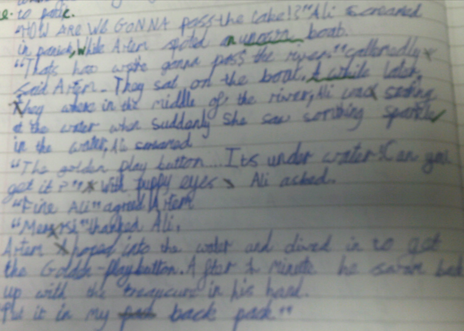 to pass.
"HOW ARE WE GONNA pass the lake!?" Ali screamed
in panick, while Artem spoted a unown boat.
"Thats how were gonna pass the river."
said Artem. They sat on the boat. A while later,
they where in the middle of the river, Ali was
at the water when suddenly she saw somthing sparkle
in the water, Ali screamed
"The golden play button... Its under water! Can you
get it?" with puppy eyes Ali asked.
"Fine Ali" agreed Artem
thanked Ali.
Artem into the water and dived in to get
the Golden-playbutton. After minute he swam back
up with the in his hand.
Put it in my back pack"